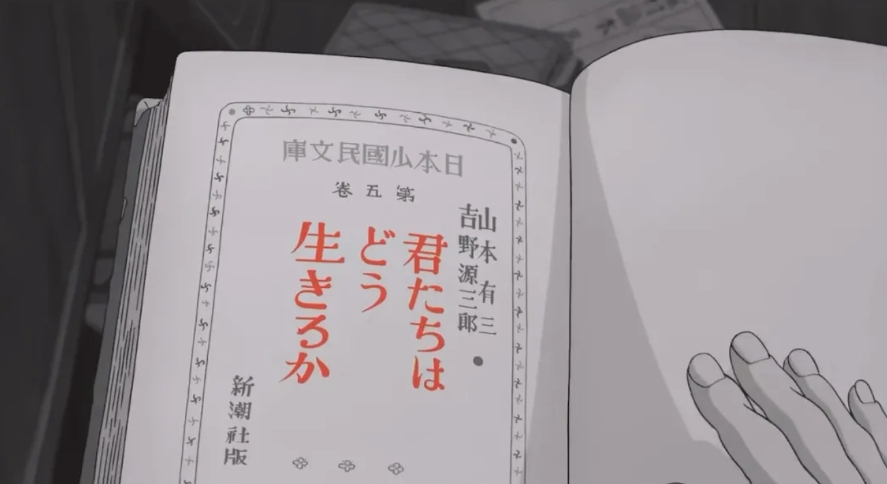 日本少國民文庫
第五卷
山本有三
吉野源三郎
君たちは
どう
生きるか
新潮社版